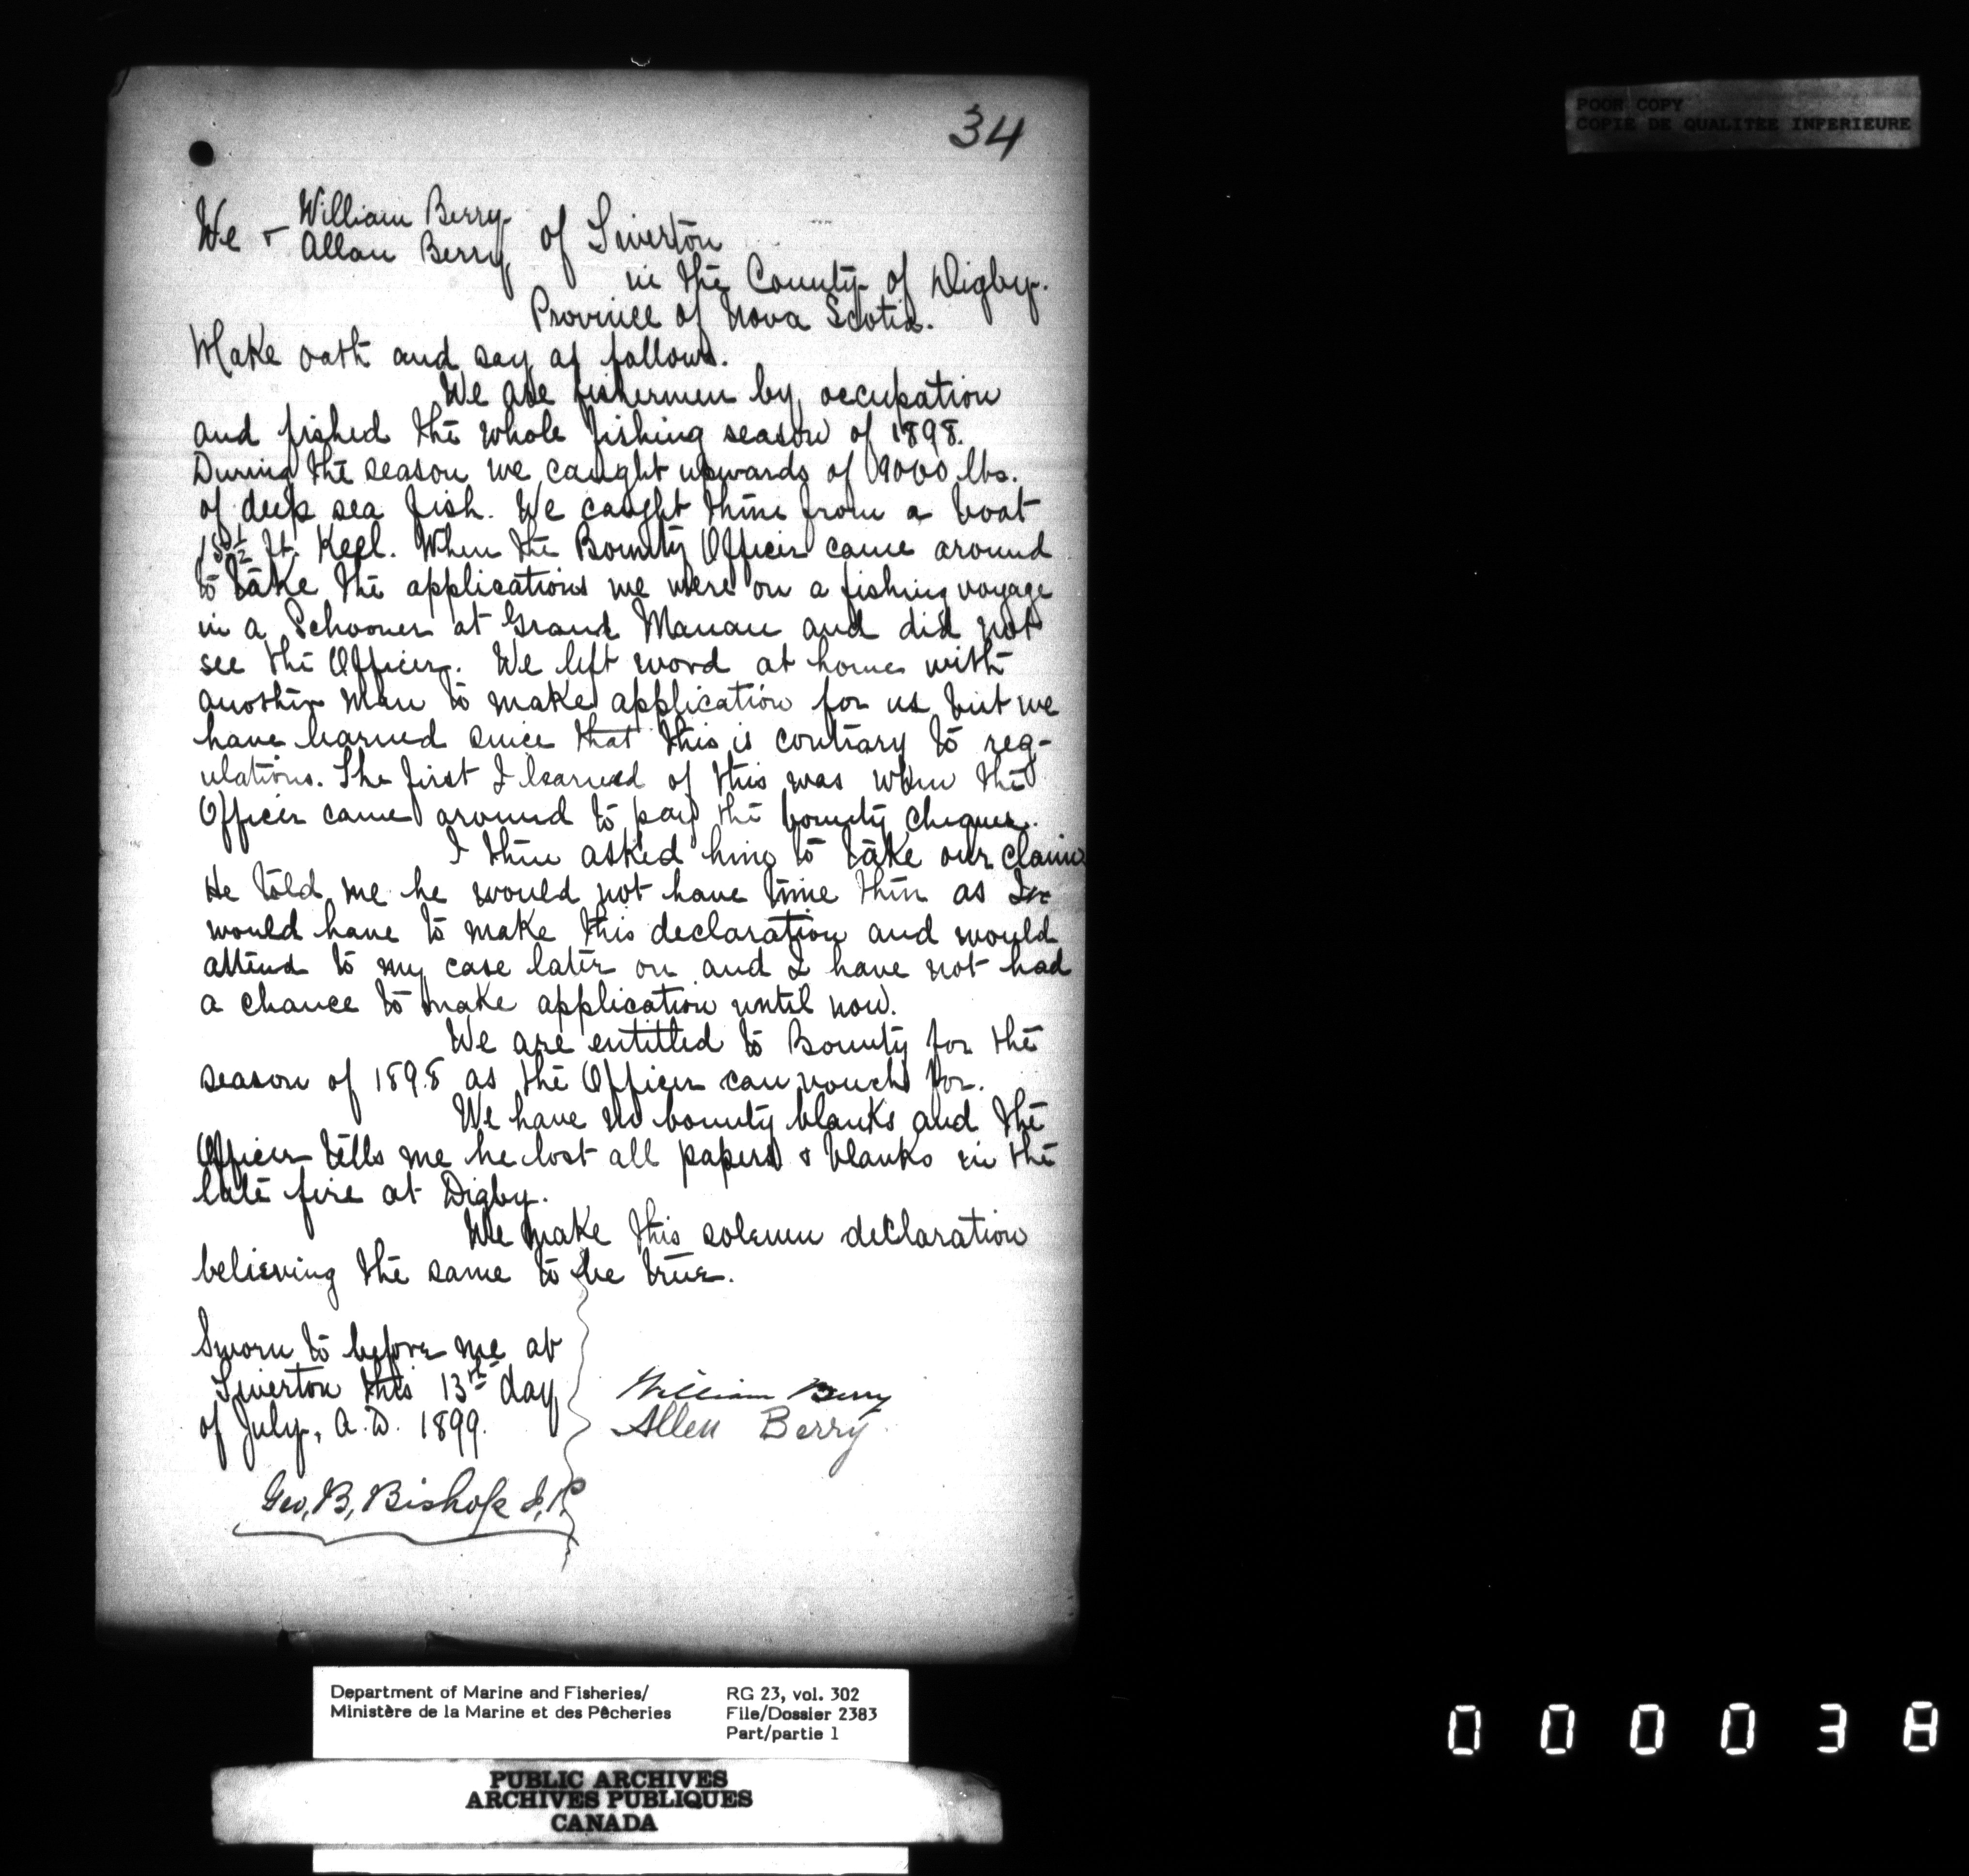 34
POOR COPY
COPIE DE QUALITEE INFERIEURE
We & William Berry
Allan Berry, of Tiverton
in the County of Digby.
Province of Nova Scotia.
Make oath and say as follows.
We are fishermen by occupation
and fished the whole fishing season of 1898.
During the season we caught upwards of 9000 lbs.
of deep sea fish. We caught them from a boat
ft. Keel. When the Bounty Officer came around
to take the applications we were on a fishing voyage
in a Schooner at Grand Manan and did not
see the Officer. We left word at home with
another man to make application for us but we
have learned since that this is contrary to reg-
ulations. The first I learned of this was when the
Officer came around to pay the bounty cheques.
I then asked him to take our claim
He told me he would not have time then as
would have to make this declaration and would
attend to my case later on and I have not had
a chance to make application until now.
We are entitled to Bounty for the
season of 1898 as the Officer can vouch for.
We have no bounty blanks and the
Officer tells me he lost all papers & blanks in the
late fire at Digby.
We make this solemn declaration
believing the same to be true.
Sworn to before me at
Tiverton this 13th day
of July, A.D. 1899.
William Berry
Allen Berry
Geo, B, Bishop J.P.
Department of Marine and Fisheries/
Ministère de la Marine et des Pêcheries
RG 23, vol. 302
File/Dossier 2383
Part/partie 1
PUBLIC ARCHIVES
ARCHIVES PUBLIQUES
CANADA
000038